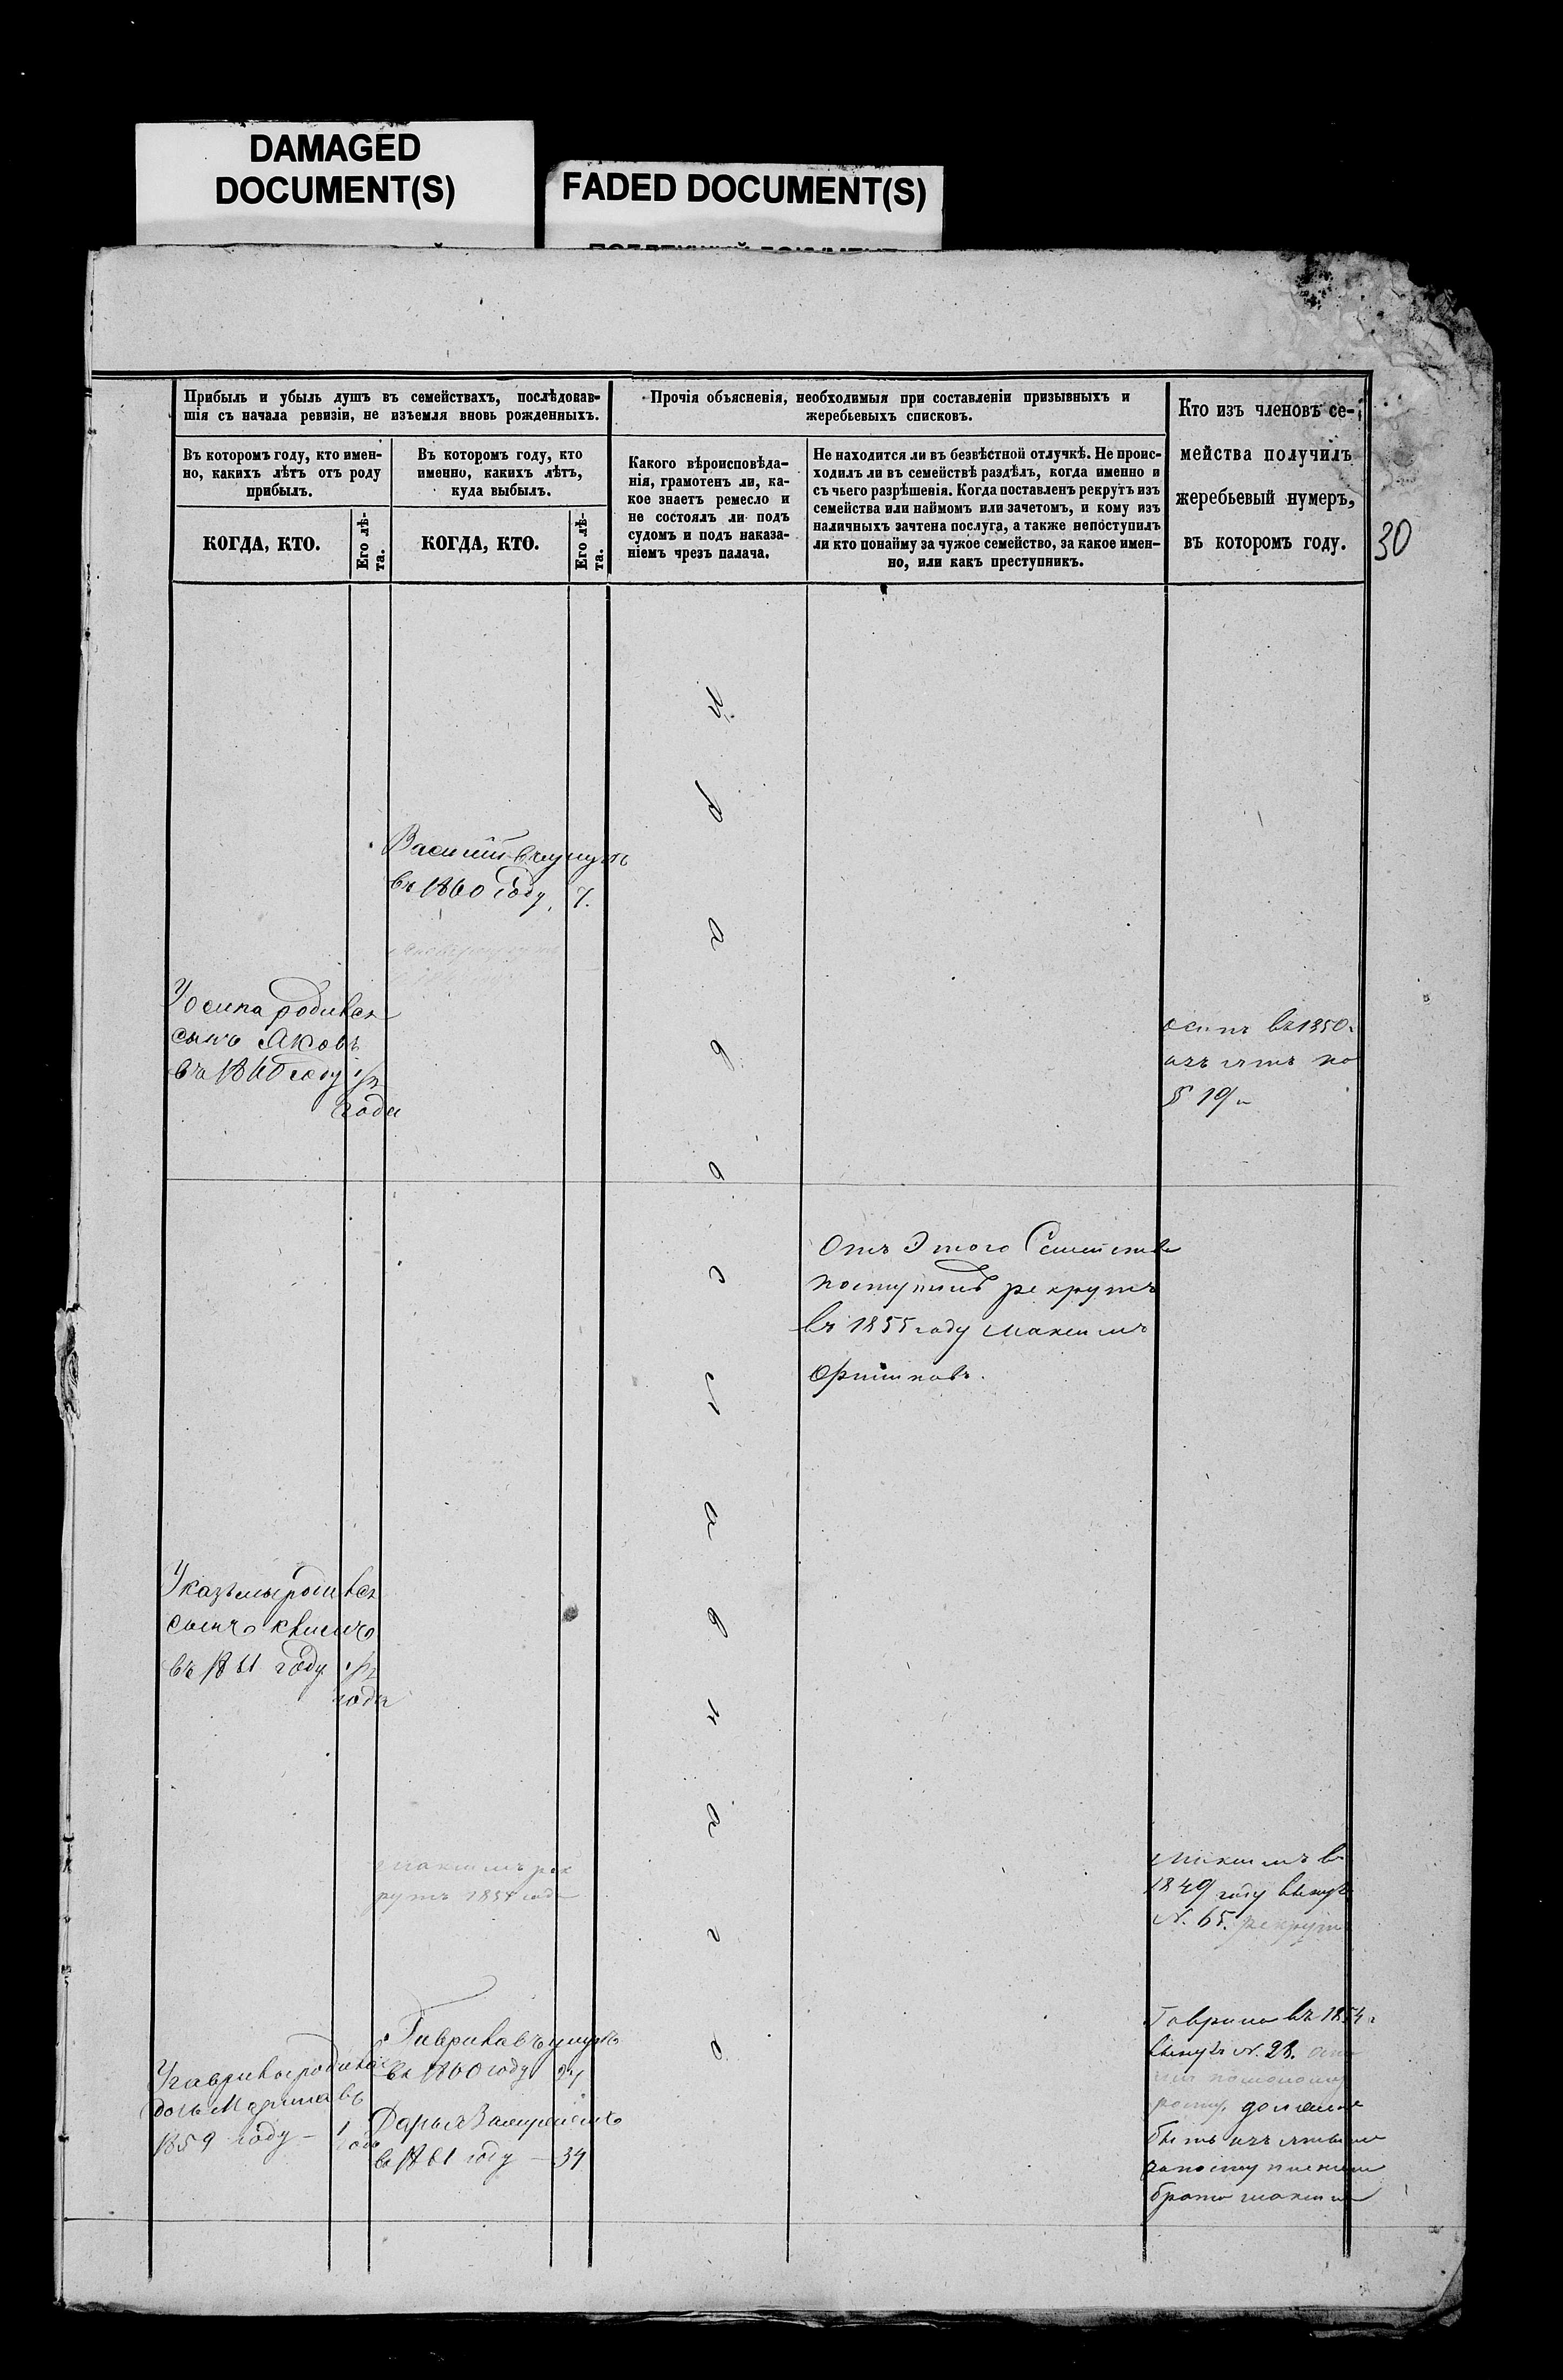 DAMAGED
DOCUMENT(S)
FADED DOCUMENT(S)
Прибыль и убыль душъ въ семействахъ, послѣдовав-
шія съ начала ревизіи, не изъемля вновь рожденныхъ.
Въ которомъ году, кто имен-
но, какихъ лѣтъ отъ роду
прибылъ.
КОГДА, КТО.
Его лѣ-
та.
Въ которомъ году, кто
именно, какихъ лѣтъ,
куда выбылъ.
КОГДА, КТО.
Его лѣ-
та.
Прочія объясненія, необходимыя при составленіи призывныхъ и
жеребьевыхъ списковъ.
Какого вѣроисповѣда-
нія, грамотенъ ли, ка-
кое знаетъ ремесло и
не состоялъ ли подъ
судомъ и подъ наказа-
ніемъ чрезъ палача.
Не находится ли въ безвѣстной отлучкѣ. Не проис-
ходилъ ли въ семействѣ раздѣлъ, когда именно и
съ чьего разрѣшенія. Когда поставленъ рекрутъ изъ
семейства или наймомъ или зачетомъ, и кому изъ
наличныхъ зачтена послуга, а также непоступилъ
ли кто понайму за чужое семейство, за какое имен-
но, или какъ преступникъ.
Кто изъ членовъ се-
мейства получилъ
жеребьевый нумеръ,
въ которомъ году.
30
Василій
въ 1860 году 7.
Уосипа родився
сынъ Яковъ
въ 1860 году 1/2
года
осипъ въ 1850
изъятъ по
§ 19
п р а в о с л а в н а г о
Отъ Этого Семейства
поступилъ рекрутъ
въ 1855 году Максимъ
У казьмы родився
сынъ
въ 1861 году 1/2
года
Максимъ рек
рутъ 185 года
Максимъ в
1849 году вынулъ
N. 65. рекрутъ
Гаврила умулъ
въ 1860 году 24
Дарья
въ 1861 году — 34
У гаврилы родилась
дочь Марина въ
1859 году — 1
года
Гаврило въ 1854
вынулъ N. 28.
должен
быть
брата максима